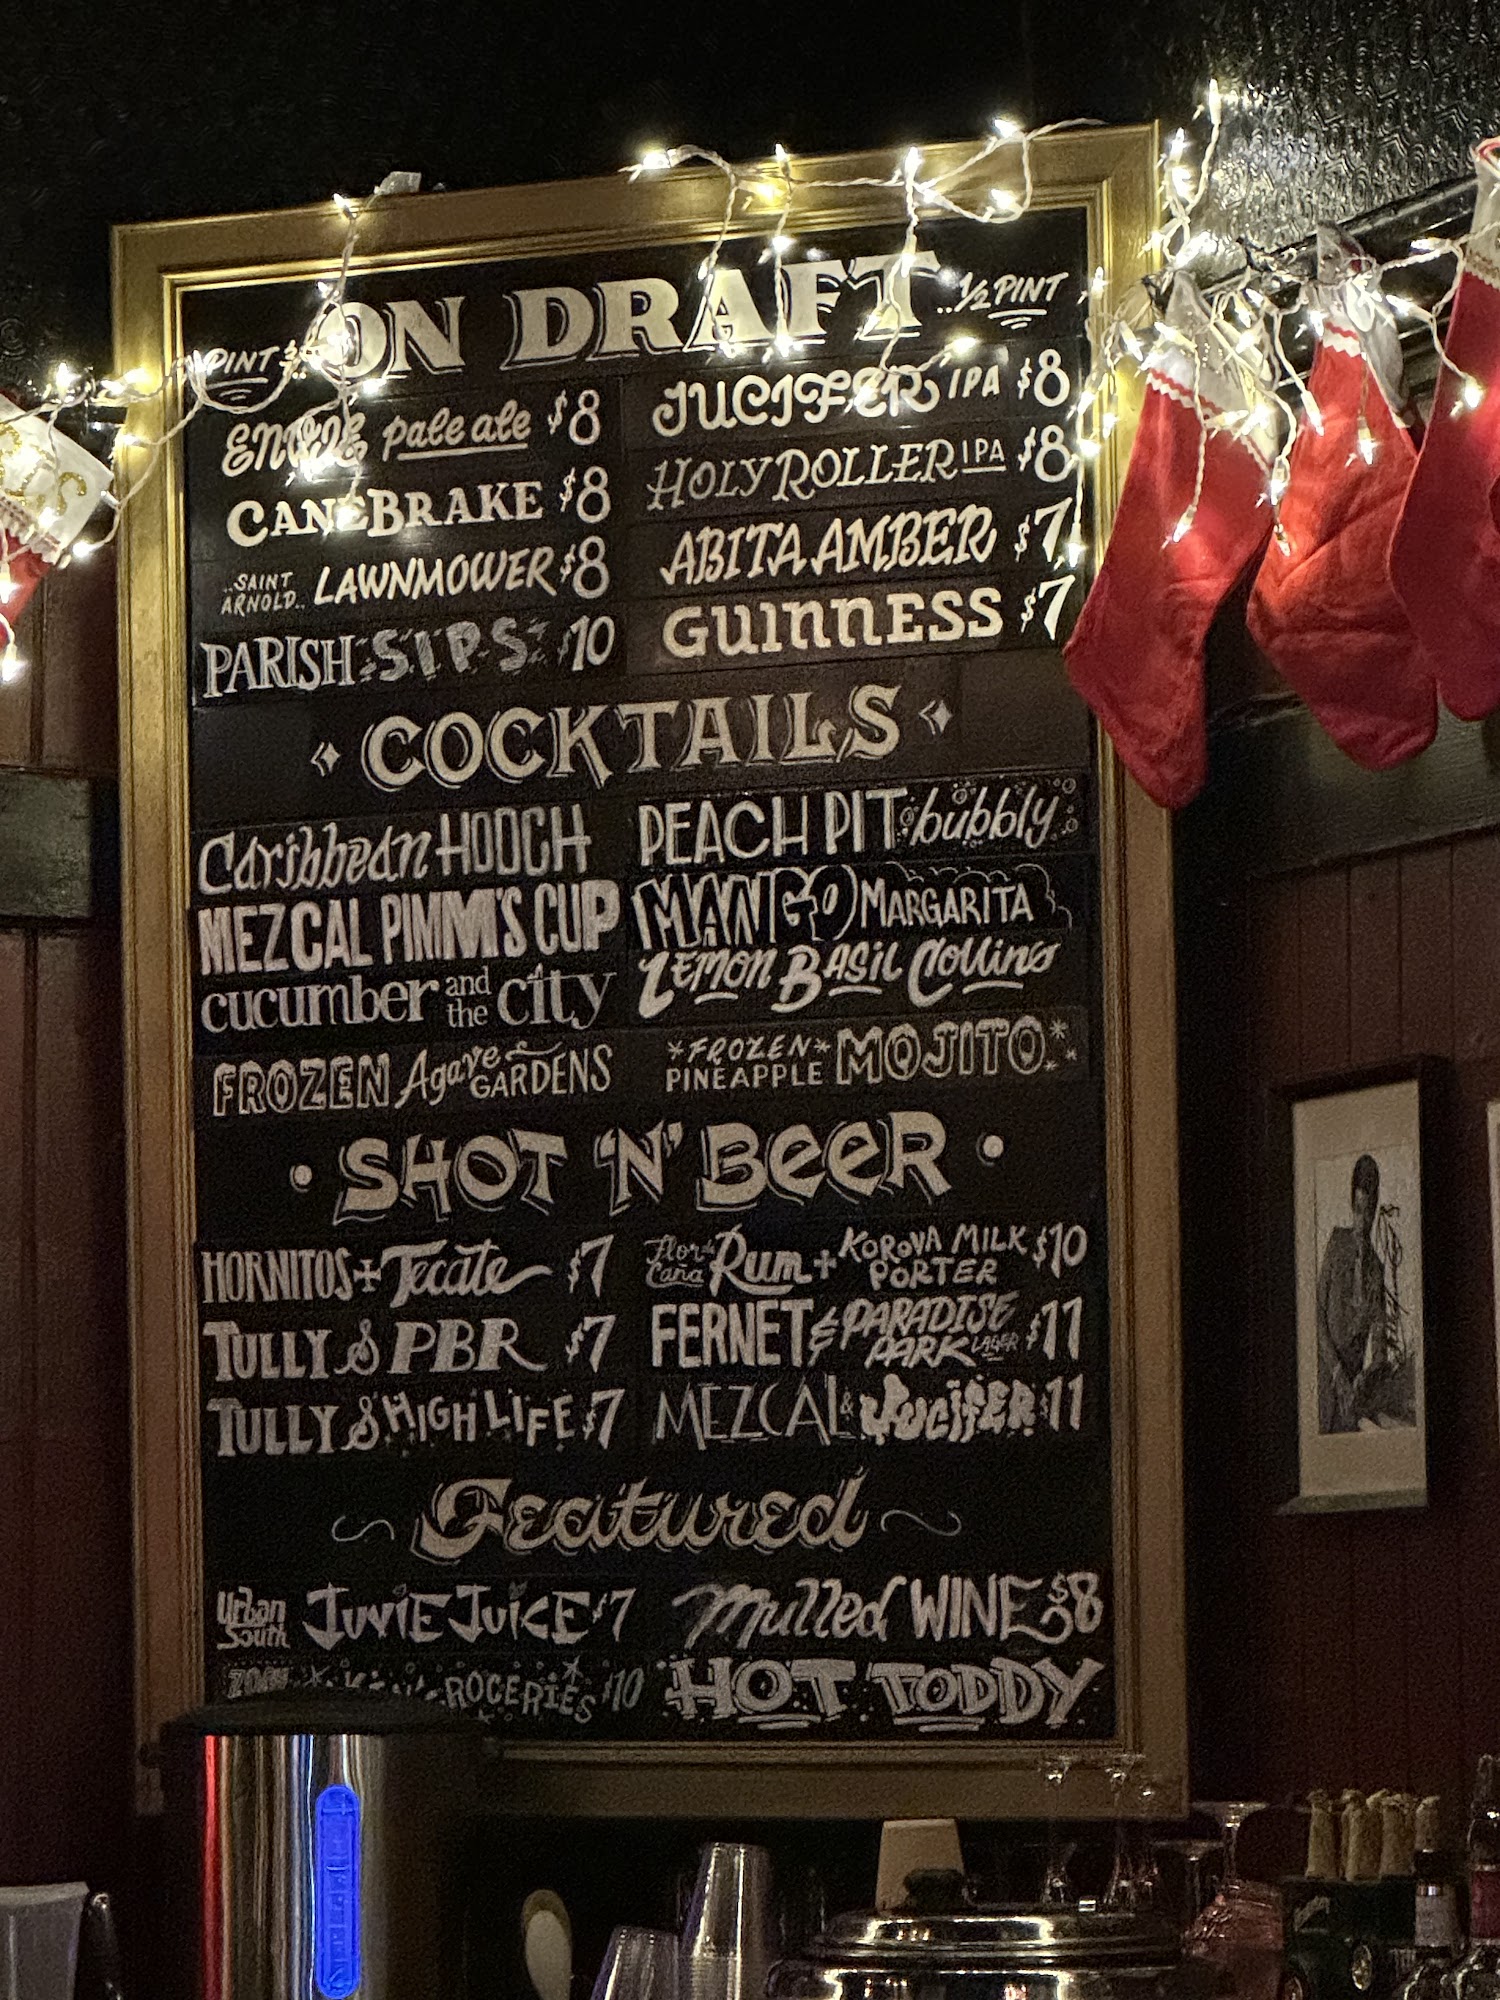 ON DRAFT
PINT &
..1/2 PINT
ENVIE pale ale $8
CANEBRAKE $8
..SAINT ARNOLD.. LAWNMOWER $8
PARISH SIPS $10
JUCIFER IPA $8
HOLY ROLLER IPA $8
ABITA AMBER $7
GUINNESS $7
COCKTAILS
Caribbean HOOCH
MEZCAL PIMM'S CUP
cucumber and the city
FROZEN Agave GARDENS
PEACH PIT bubbly
MANGO MARGARITA
LEMON BASIL Collins
*FROZEN* PINEAPPLE MOJITO
SHOT 'N' BEER
HORNITOS + Tecate $7
TULLY & PBR $7
TULLY & HIGH LIFE $7
Flor de Caña Rum + KOROVA MILK PORTER $10
FERNET & PARADISE PARK LAGER $11
MEZCAL & JUCIFER $11
Featured
Urban South JUVIE JUICE $7
ROCERIES $10
Mulled WINE $8
HOT TODDY